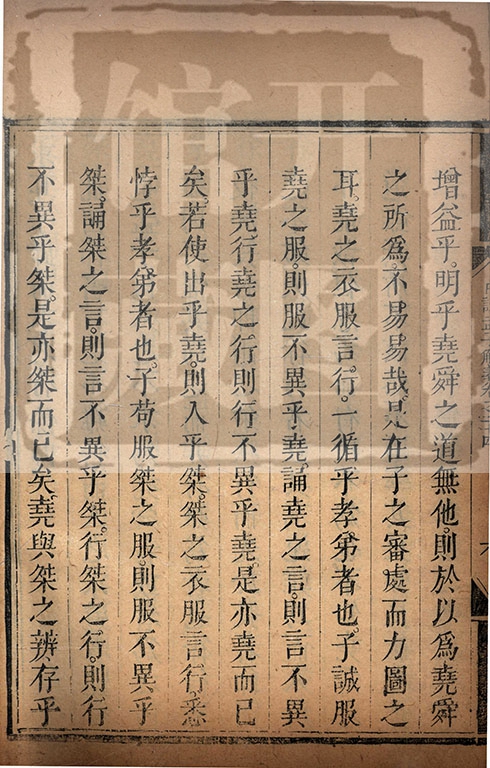 增益乎。明乎堯舜之道無他。則於以爲堯舜
之所爲。不易易哉。是在子之審處而力圖之
耳。堯之衣服言行。一循乎孝弟者也。子誠服
堯之服。則服不異乎堯。誦堯之言。則言不異
乎堯。行堯之行。則行不異乎堯。是亦堯而已
矣。若使出乎堯。則入乎桀。桀之衣服言行。悉
悖乎孝弟者也。子苟服桀之服。則服不異乎
桀。誦桀之言。則言不異乎桀。行桀之行。則行
不異乎桀。是亦桀而已矣。堯與桀之辨存乎